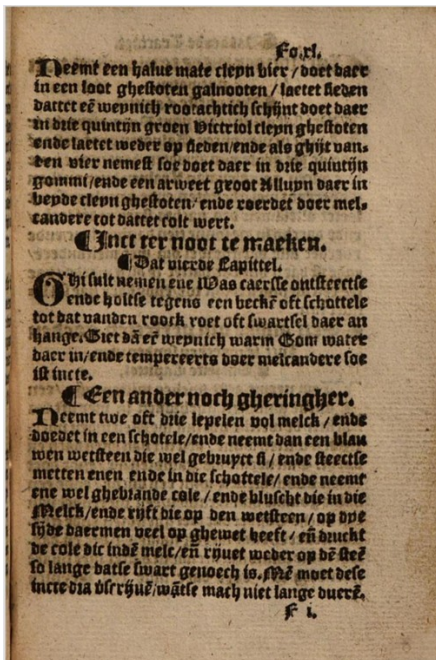 Fo.xl.
Neemt een halue mate cleyn bier / doet daer
in een loot ghestoten galnooten / laetet sieden
dattet eē weynich rootachtich schijnt doet daer
in drie quintijn groen Victriol cleyn ghestoten
ende laetet weder op sieden/ende als ghijt van-
den vier nemest soe doet daer in drie quintijn
gommi/ende een arweet groot Alluyn daer in
beyde cleyn ghestoten/ ende roerdet doer mel-
candere tot dattet colt wert.
¶Inct ter noot te maeken.
¶Dat vierde Capittel.
GHi sult nemen ene Was caersse ontsteectse
ende holtse tegens een beckē oft schottele
tot dat vanden roock roet oft swartsel daer an
hange. Giet dā eē weynich warm Gom water
daer in/ende tempereerts doer melcandere soe
ist incte.
¶Een ander noch gheringher.
Neemt twe oft drie lepelen vol melck / ende
doedet in een schotele/ende neemt dan een blau
wen wetsteen die wel gebruyct si / ende steectse
metten enen ende in die schottele/ ende neemt
ene wel ghebrande cole / ende bluscht die in die
Melck/ende rijft die op den wetsteen / op dye
syde daermen veel op ghewet heeft / eñ druckt
de cole dic indē melc/eñ rijuet weder op dē steē
so lange datse swart genoech is. Mē moet dese
incte dra vserijuē/wātse mach niet lange duerē.
F i.